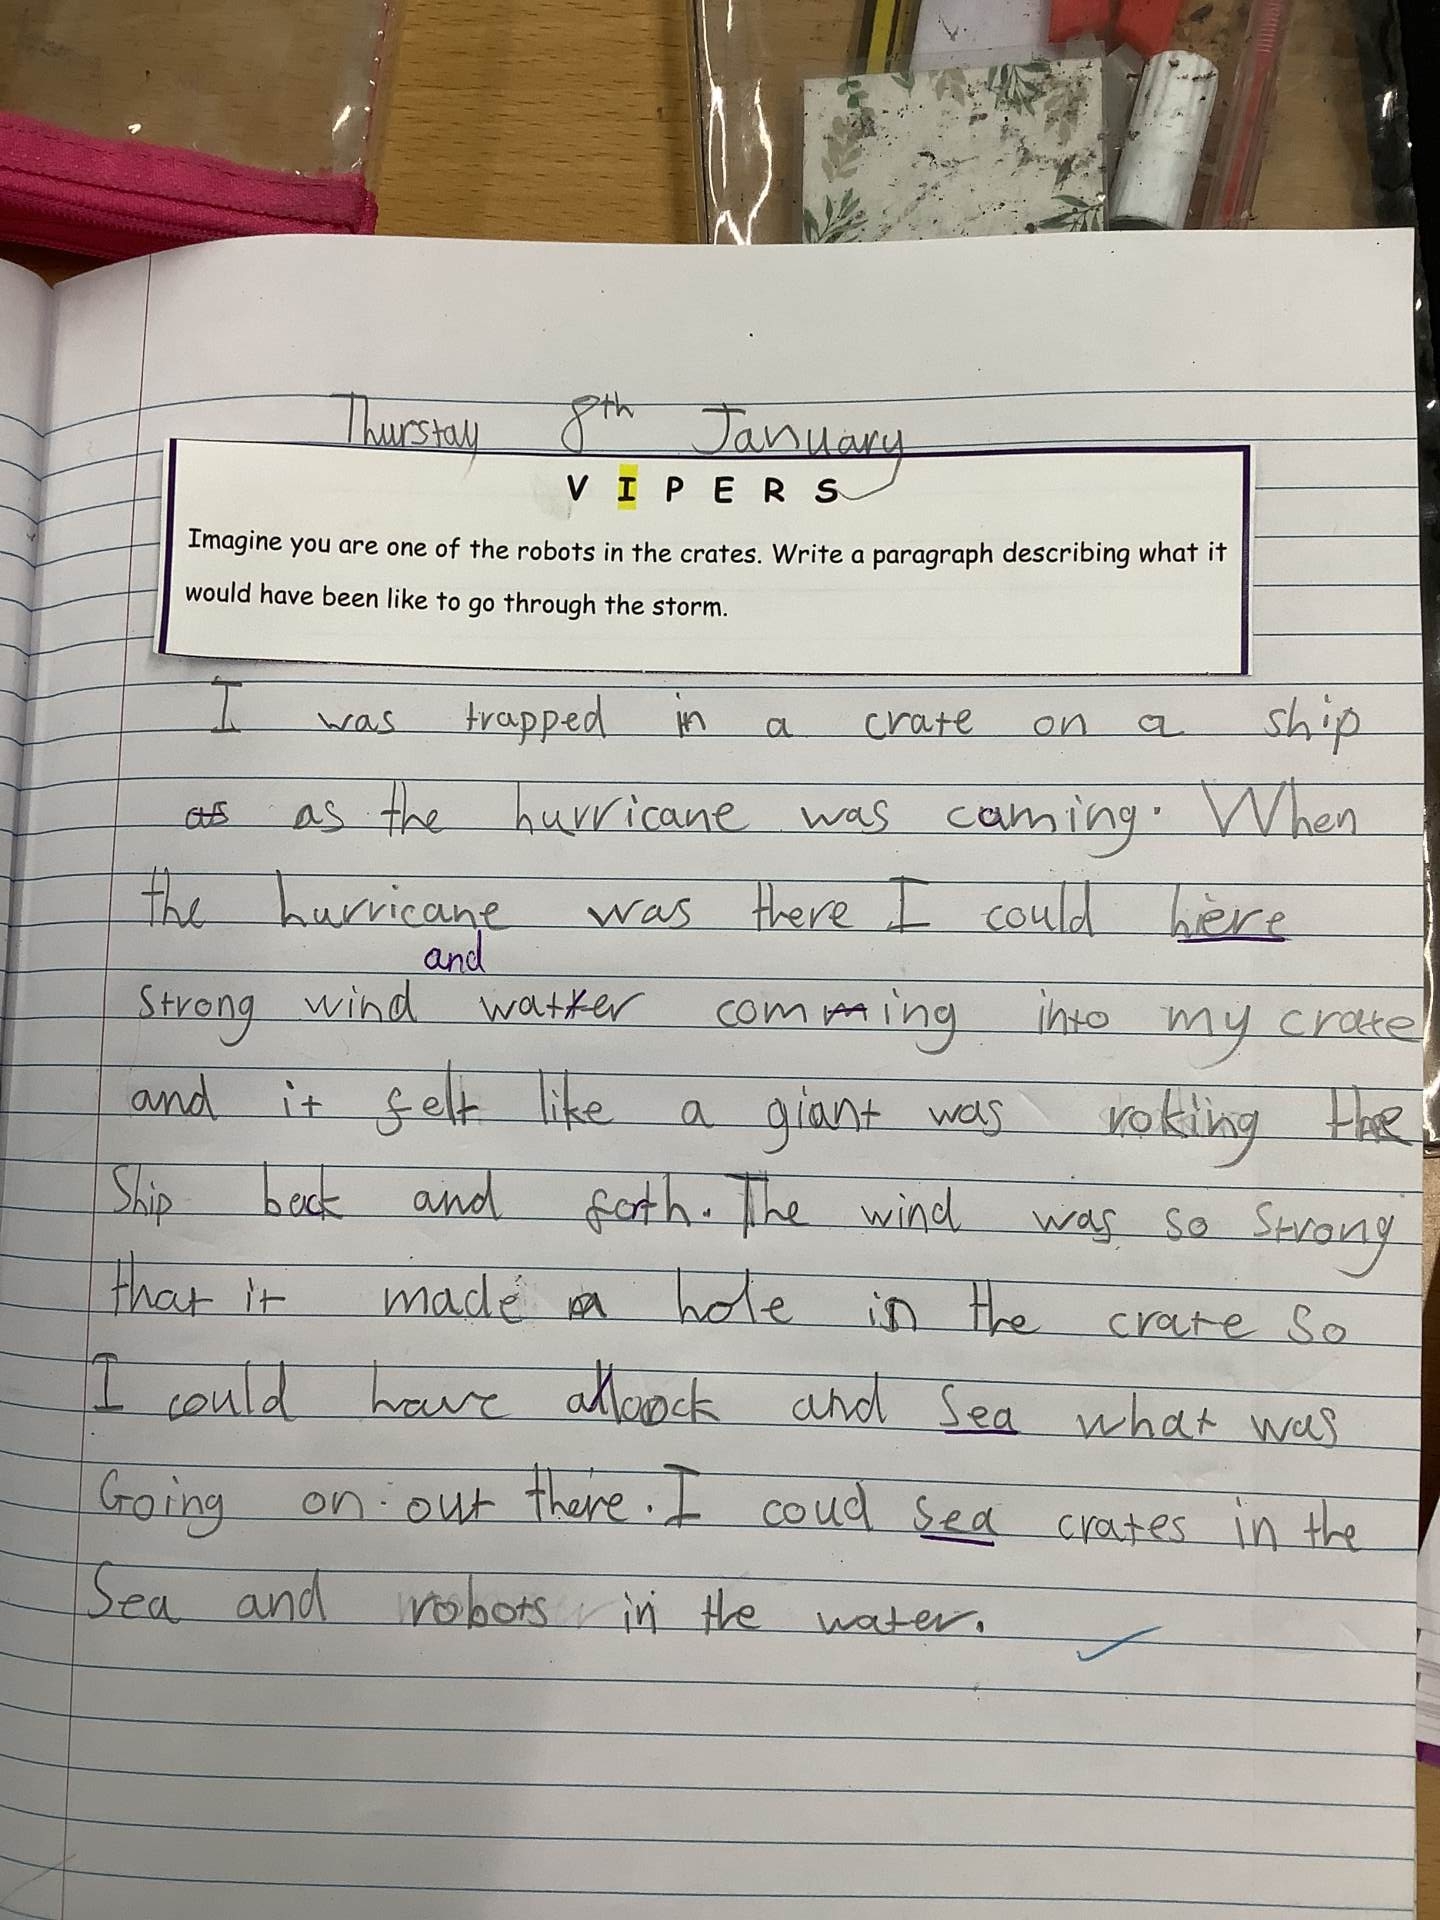 Thurstay 8th January
V I P E R S
Imagine you are one of the robots in the crates. Write a paragraph describing what it
would have been like to go through the storm.
I was trapped in a crate on a ship
as as the hurricane was coming. When
the hurricane was there I could hiere
and
strong wind watter comming into my crate
and it felt like a giant was roking the
Ship back and forth. The wind was so strong
that it made a hole in the crate so
I could have a look and sea what was
Going on out there. I coud sea crates in the
Sea and robots in the water.